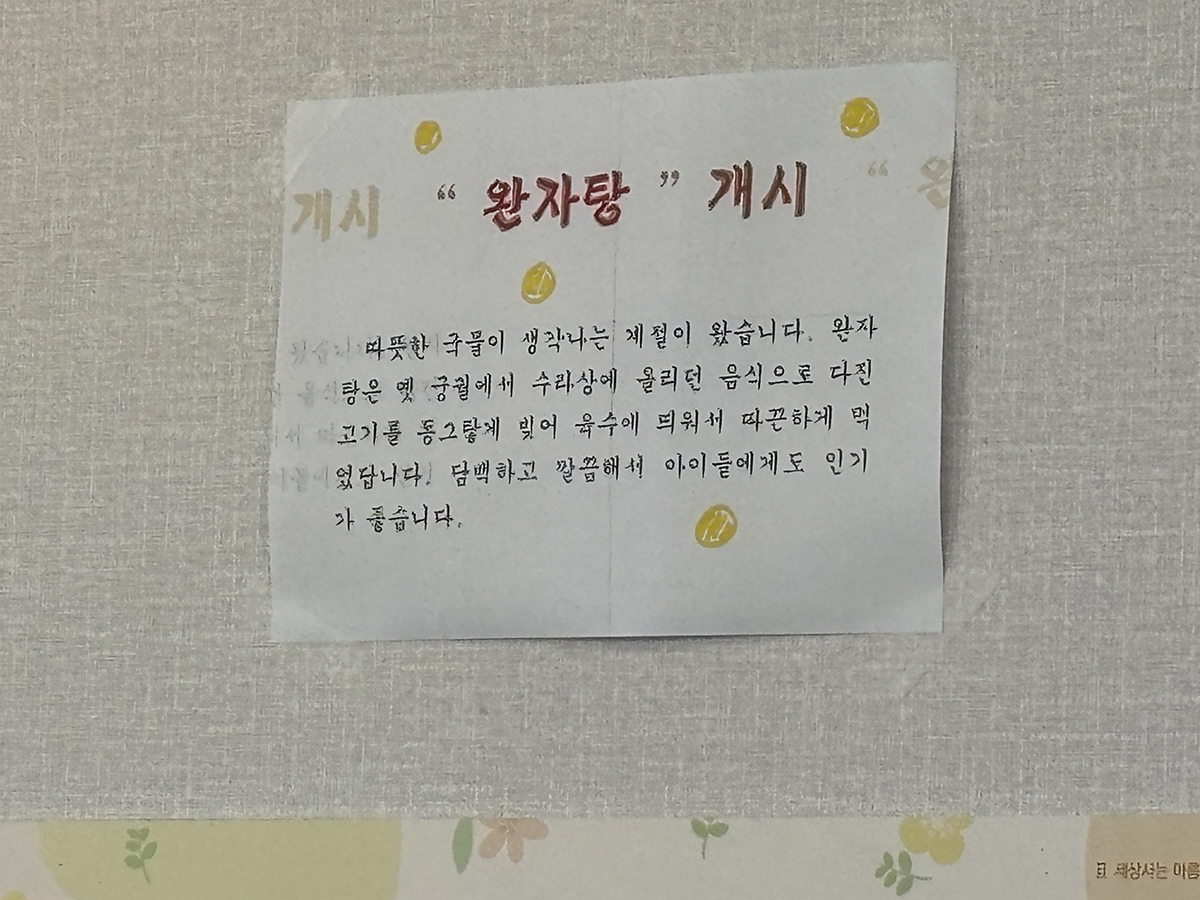 개시 “ 완자탕 ” 개시 “
따뜻한 국물이 생각나는 계절이 왔습니다. 완자
탕은 옛 궁궐에서 수라상에 올리던 음식으로 다진
고기를 동그랗게 빚어 육수에 띄워서 따끈하게 먹
었답니다. 담백하고 깔끔해서 아이들에게도 인기
가 좋습니다.